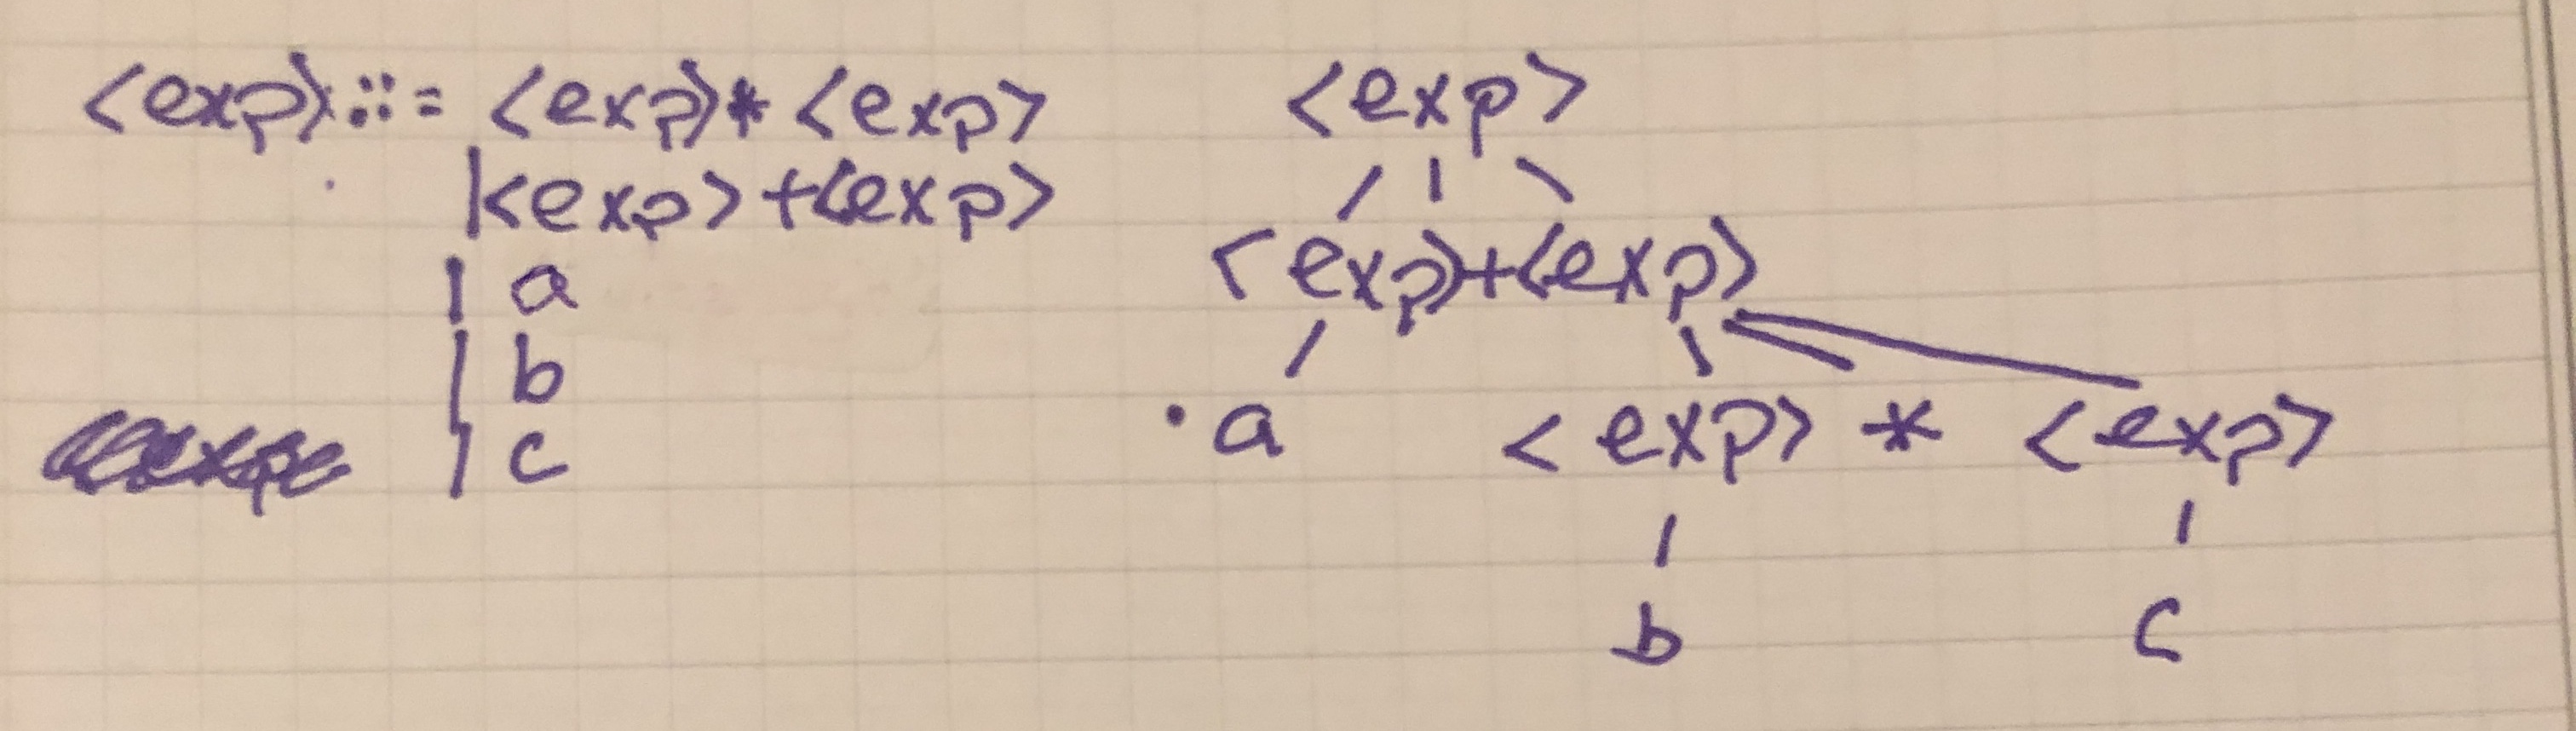 <exp> ::= <exp> * <exp>
| <exp> + <exp>
| a
| b
| c
<exp>
<exp> + <exp>
a <exp> * <exp>
b c